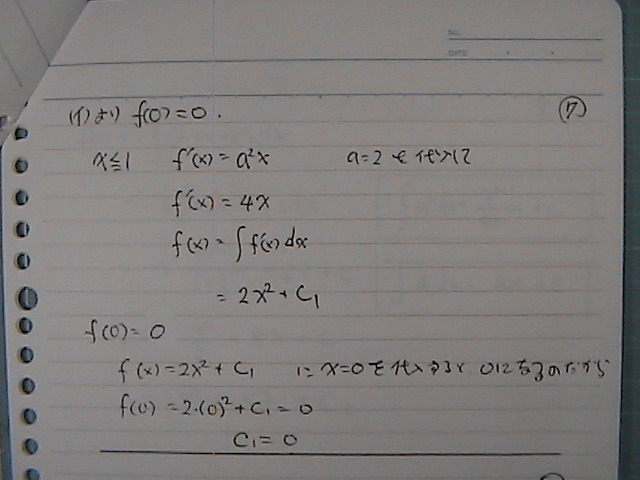 NO.
DATE
(イ)より f(0)=0. ⑦
x≦1 f'(x)=a²x a=2を代入して
f'(x)=4x
f(x)=∫f'(x)dx
=2x²+C₁
f(0)=0
f(x)=2x²+C₁ に x=0を代入すると 0になるのだから
f(0)=2·(0)²+C₁=0
C₁=0